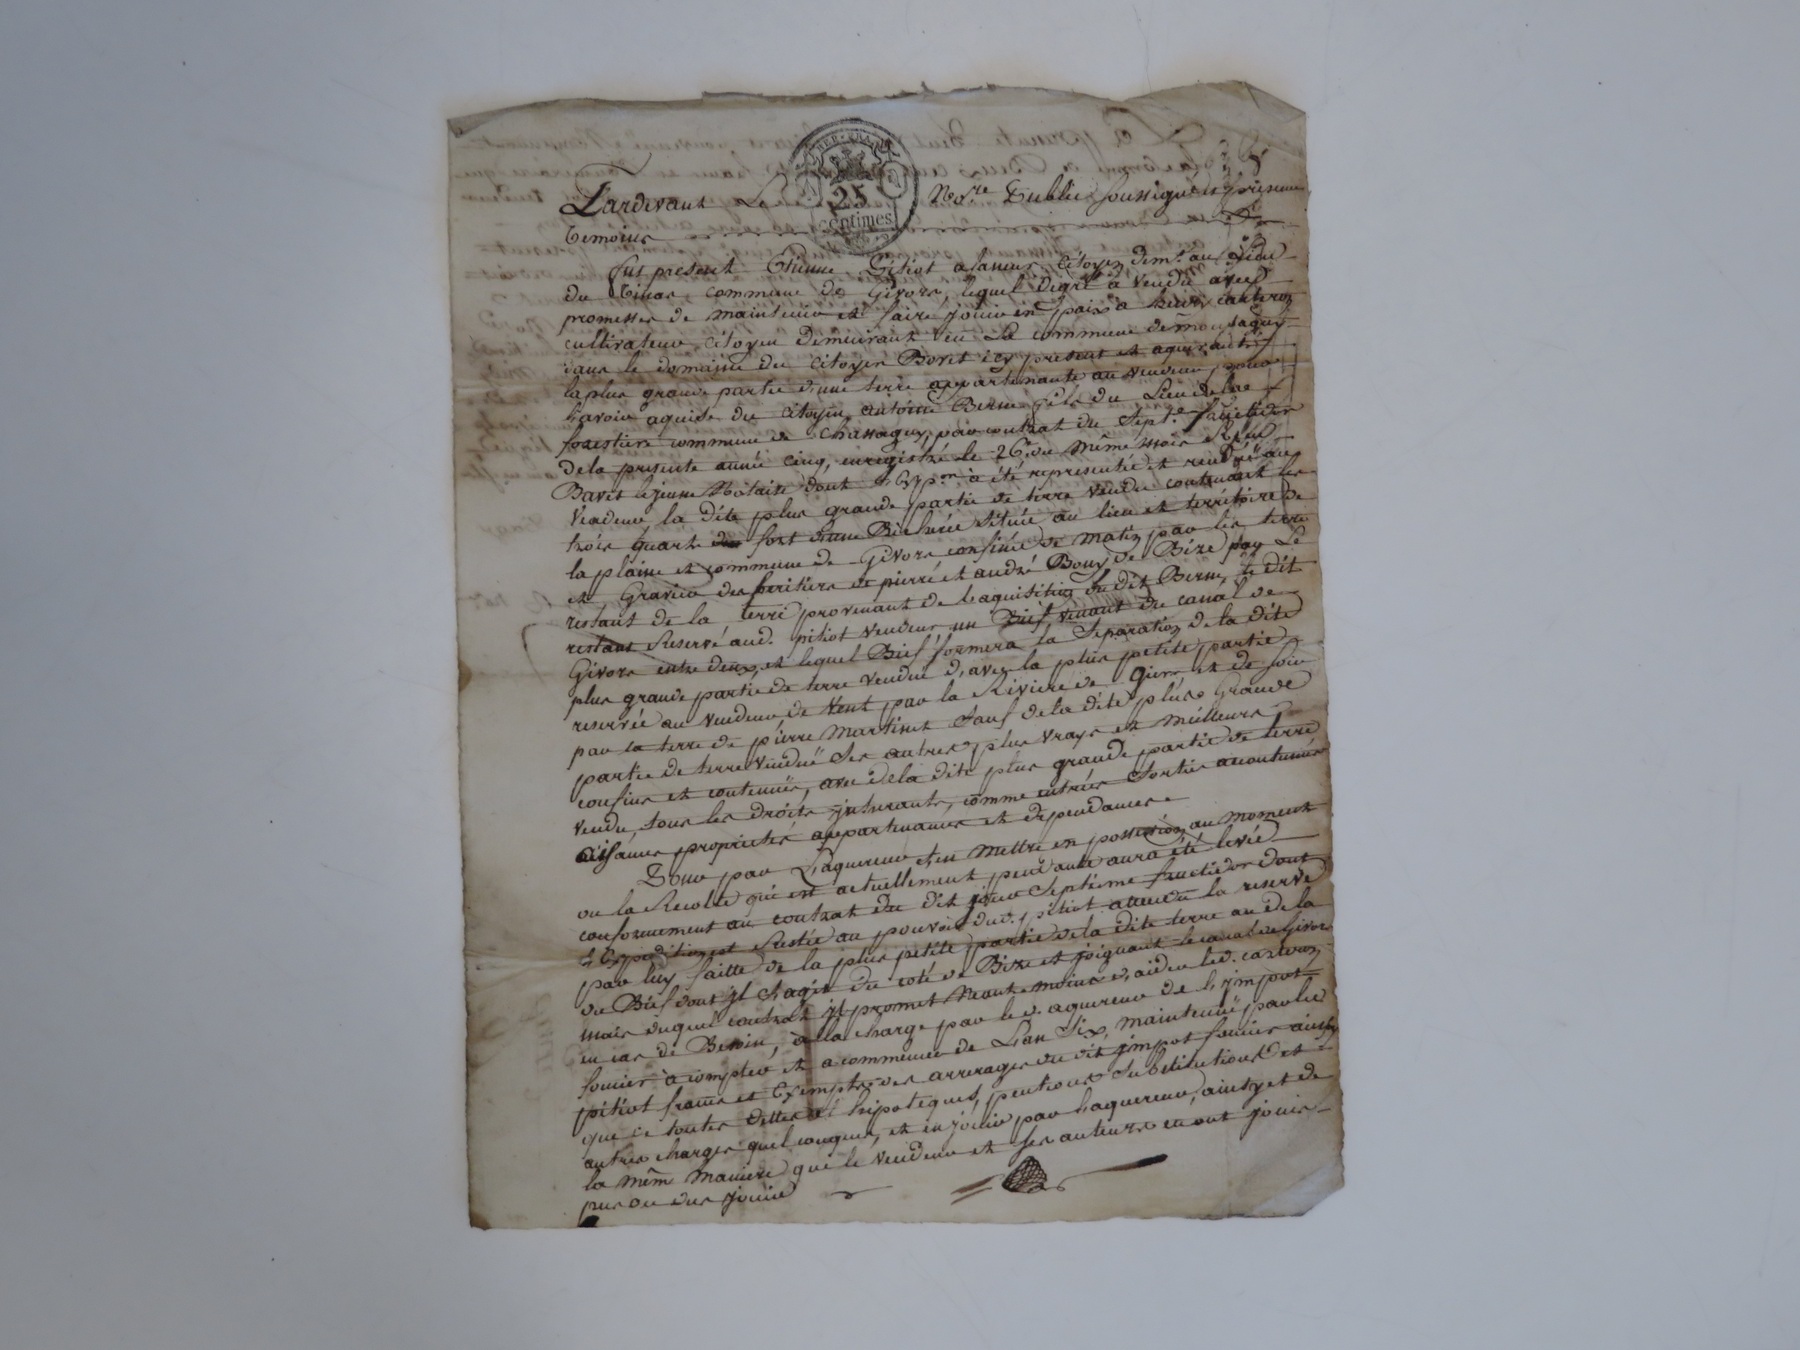 REP. FRA.
25
centimes
Pardevant Le No.re Public soussigné et présence
temoins
fut present Etienne Pitiot ainé citoyen dem.t au lieu
du commune de Givors, lequel degré a vendu avec
promesses de maintenir et faire jouir en paix à
cultivateur citoyen demeurant en la commune de montagny
dans le domaine du citoyen Boret icy present et aquereur
la plus grande partie d'une terre appartenante au vendeur pour
l'avoir aquise du citoyen antoine Berne fils du Lieu de la
forestiere commune de Chassagny, par contrat du Sept.e fructidor
de la presente année cinq, enregistré le 26 du même mois
Bavet le jeune Notaire dont l'Exp.on a été representée et rendüe au
Vendeur, la dite plus grande partie de terre vendue contenant les
trois quart fort d'une Bicherée située au lieu et territoire de
la plaine et commune de Givors confinée de matin par les terre
et Gravier des heritiers de pierre et andré Bouy de Bize par Le
restant de la terre provenant de l'aquisition du dit Berne, le dit
restant Reservé aud. pitiot vendeur un Bief venant du canal de
Givors entre deux, et lequel Bief formera la Separation de la dite
plus grande partie de terre vendue d'avec la plus petite partie
reservée au vendeur, de Vent par la Riviere de Giers, et de soir
par la terre de pierre Martinet Sauf de la dite plus Grande
partie de terre vendüe ses autres plus vrays et meilleurs
confins et contenües, avec de la dite plus grande partie de terre
vendu, tous les droits jnherants, comme entrées Sorties acoutumées
aisances proprietés appartenances et dependances
Pour par L'aquereur s'en mettre en possession au moment
ou la Recolte qui est actuellement pendante aura été levée
conformement au contrat du dit jour Septieme fructidor dont
L'Expedition est Restée au pouvoir dud. pitiot attendu la reserve
par luy faitte de la plus petite partie de la dite terre au de la
du Bief dont jl s'agit du coté de Bize et joignant le canal de Givors
mais duquel contrat jl promet Neant moins d'aider led.
en cas de Besoin, à la charge par le d. aquereur de l'jmpot
foncier à compter et a commencer de L'an Six, maintenüe par led
pitiot francs et Exempts des arrerages du dit jmpot foncier ainsy
que de toutes dettes et hipoteques, pentions Substitutions et
autres charges quelconques, et en jouir par l'aquereur, ainsy et de
la même maniere que le vendeur et ses auteurs en ont jouis
pus ou dus jouir